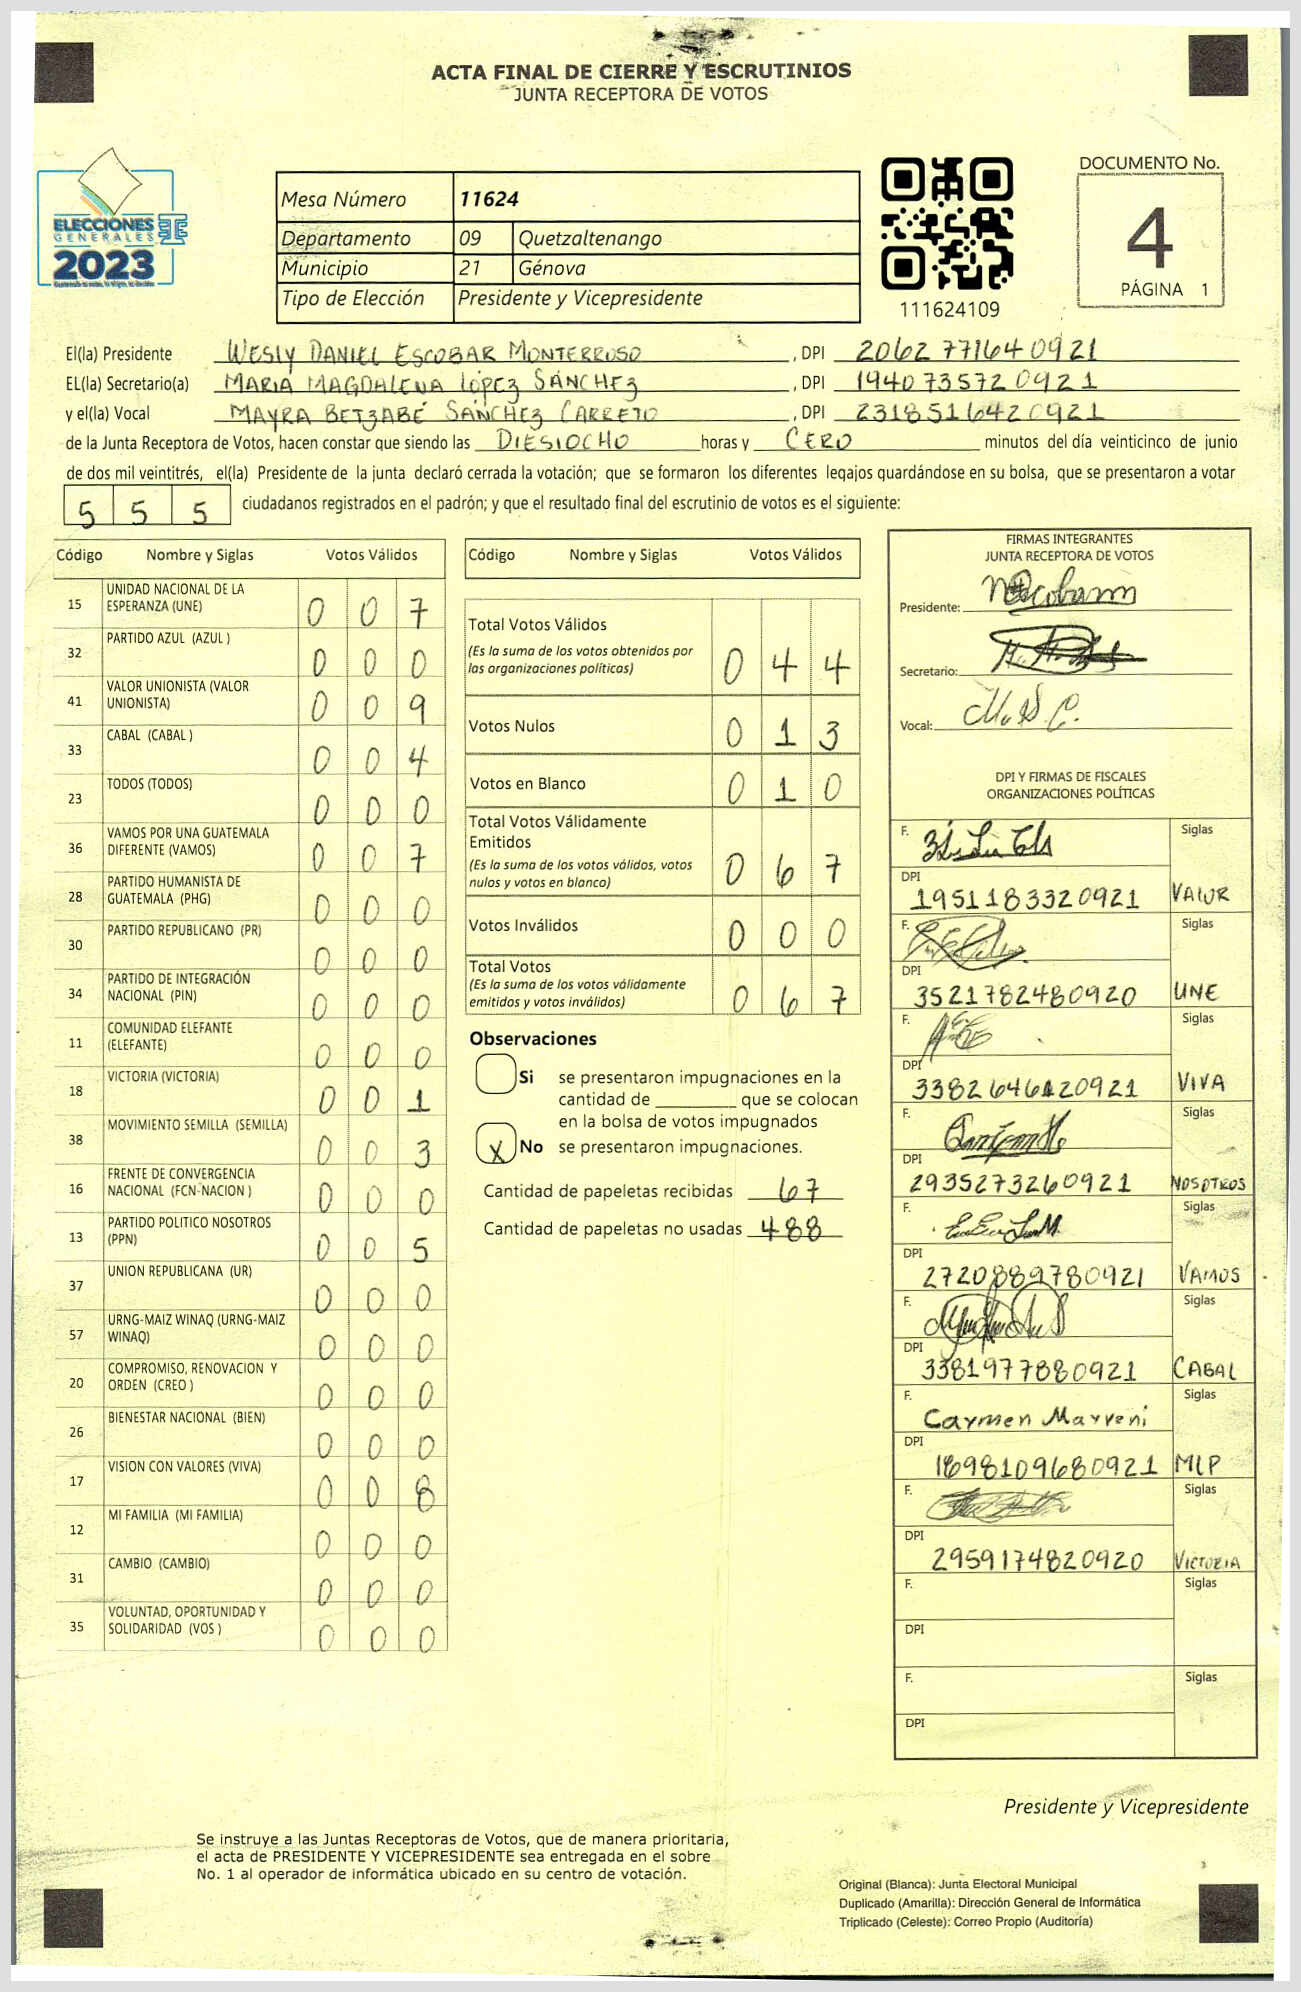 ACTA FINAL DE CIERRE Y ESCRUTINIOS
JUNTA RECEPTORA DE VOTOS
ELECCIONES
GENERALES
2023
Mesa Número 11624
Departamento 09 Quetzaltenango
Municipio 21 Génova
Tipo de Elección Presidente y Vicepresidente
111624109
DOCUMENTO No.
4
PÁGINA 1
El(la) Presidente WESLY DANIEL ESCOBAR MONTERROSO, DPI 2062 77164 0921
EL(la) Secretario(a) MARIA MAGDALENA LÓPEZ SÁNCHEZ, DPI 1940 73572 0921
y el(la) Vocal MAYRA BETZABÉ SÁNCHEZ CARRETO, DPI 2318516420921
de la Junta Receptora de Votos, hacen constar que siendo las DIESIOCHO horas y CERO minutos del día veinticinco de junio
de dos mil veintitrés, el(la) Presidente de la junta declaró cerrada la votación; que se formaron los diferentes legajos quardándose en su bolsa, que se presentaron a votar
5 5 5 ciudadanos registrados en el padrón; y que el resultado final del escrutinio de votos es el siguiente:
Código Nombre y Siglas Votos Válidos
15 UNIDAD NACIONAL DE LA
ESPERANZA (UNE) 0 0 7
32 PARTIDO AZUL (AZUL ) 0 0 0
41 VALOR UNIONISTA (VALOR
UNIONISTA) 0 0 9
33 CABAL (CABAL ) 0 0 4
23 TODOS (TODOS) 0 0 0
36 VAMOS POR UNA GUATEMALA
DIFERENTE (VAMOS) 0 0 7
28 PARTIDO HUMANISTA DE
GUATEMALA (PHG) 0 0 0
30 PARTIDO REPUBLICANO (PR) 0 0 0
34 PARTIDO DE INTEGRACIÓN
NACIONAL (PIN) 0 0 0
11 COMUNIDAD ELEFANTE
(ELEFANTE) 0 0 0
18 VICTORIA (VICTORIA) 0 0 1
38 MOVIMIENTO SEMILLA (SEMILLA) 0 0 3
16 FRENTE DE CONVERGENCIA
NACIONAL (FCN-NACION ) 0 0 0
13 PARTIDO POLITICO NOSOTROS
(PPN) 0 0 5
37 UNION REPUBLICANA (UR) 0 0 0
57 URNG-MAIZ WINAQ (URNG-MAIZ
WINAQ) 0 0 0
20 COMPROMISO, RENOVACION Y
ORDEN (CREO ) 0 0 0
26 BIENESTAR NACIONAL (BIEN) 0 0 0
17 VISION CON VALORES (VIVA) 0 0 8
12 MI FAMILIA (MI FAMILIA) 0 0 0
31 CAMBIO (CAMBIO) 0 0 0
35 VOLUNTAD, OPORTUNIDAD Y
SOLIDARIDAD (VOS ) 0 0 0
Código Nombre y Siglas Votos Válidos
Total Votos Válidos
(Es la suma de los votos obtenidos por
las organizaciones políticas) 0 4 4
Votos Nulos 0 1 3
Votos en Blanco 0 1 0
Total Votos Válidamente
Emitidos
(Es la suma de los votos válidos, votos
nulos y votos en blanco) 0 6 7
Votos Inválidos 0 0 0
Total Votos
(Es la suma de los votos válidamente
emitidos y votos inválidos) 0 6 7
Observaciones
Si se presentaron impugnaciones en la
cantidad de ________ que se colocan
en la bolsa de votos impugnados
X No se presentaron impugnaciones.
Cantidad de papeletas recibidas 67
Cantidad de papeletas no usadas 488
FIRMAS INTEGRANTES
JUNTA RECEPTORA DE VOTOS
Presidente:
Secretario:
Vocal: M. S. C.
DPI Y FIRMAS DE FISCALES
ORGANIZACIONES POLÍTICAS
F. Siglas
DPI 1951183320921 VALOR
F. Siglas
DPI 3521782480920 UNE
F. Siglas
DPI VIVA
F. Siglas
DPI 2935273260921 NOSOTROS
F. Siglas
DPI 2720889780921 VAMOS
F. Siglas
DPI 3381977880921 CABAL
F. Carmen Marreni Siglas
DPI 1898109680921 MLP
F. Siglas
DPI 2959174820920 VICTORIA
F. Siglas
DPI
F. Siglas
DPI
Presidente y Vicepresidente
Se instruye a las Juntas Receptoras de Votos, que de manera prioritaria,
el acta de PRESIDENTE Y VICEPRESIDENTE sea entregada en el sobre
No. 1 al operador de informática ubicado en su centro de votación.
Original (Blanca): Junta Electoral Municipal
Duplicado (Amarilla): Dirección General de Informática
Triplicado (Celeste): Correo Propio (Auditoría)